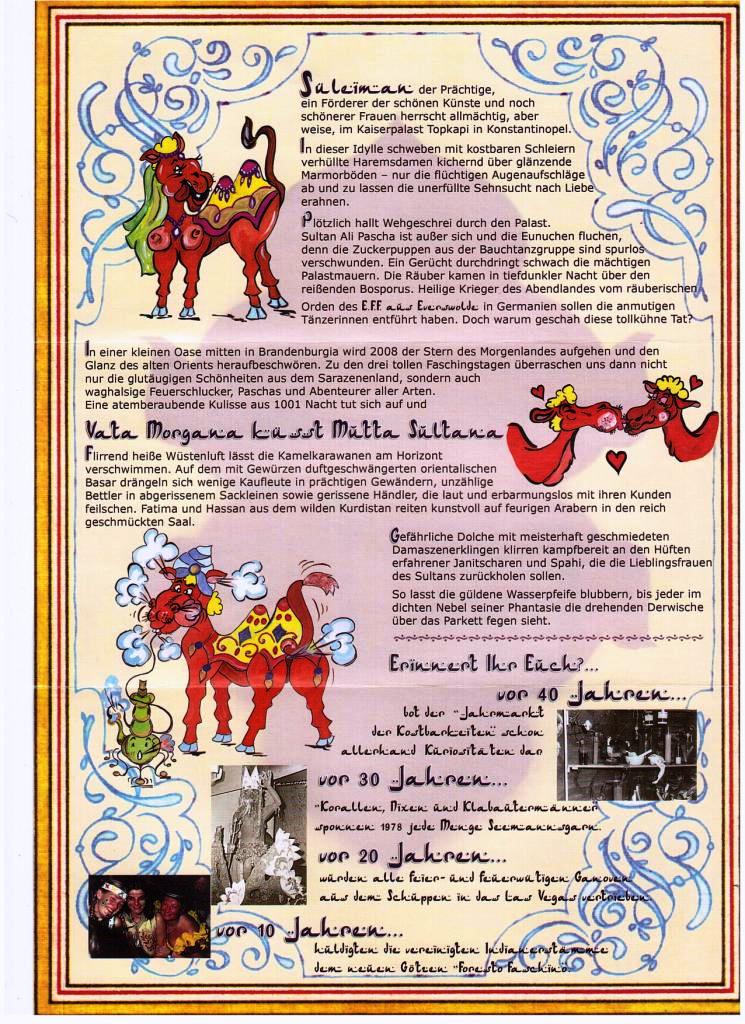 Suleiman der Prächtige,
ein Förderer der schönen Künste und noch
schönerer Frauen herrscht allmächtig, aber
weise, im Kaiserpalast Topkapi in Konstantinopel.
In dieser Idylle schweben mit kostbaren Schleiern
verhüllte Haremsdamen kichernd über glänzende
Marmorböden – nur die flüchtigen Augenaufschläge
ab und zu lassen die unerfüllte Sehnsucht nach Liebe
erahnen.
Plötzlich hallt Wehgeschrei durch den Palast.
Sultan Ali Pascha ist außer sich und die Eunuchen fluchen,
denn die Zuckerpuppen aus der Bauchtanzgruppe sind spurlos
verschwunden. Ein Gerücht durchdringt schwach die mächtigen
Palastmauern. Die Räuber kamen in tiefdunkler Nacht über den
reißenden Bosporus. Heilige Krieger des Abendlandes vom räuberischen
Orden des E.F.F. aus Everswolde in Germanien sollen die anmutigen
Tänzerinnen entführt haben. Doch warum geschah diese tollkühne Tat?
In einer kleinen Oase mitten in Brandenburgia wird 2008 der Stern des Morgenlandes aufgehen und den
Glanz des alten Orients heraufbeschwören. Zu den drei tollen Faschingstagen überraschen uns dann nicht
nur die glutäugigen Schönheiten aus dem Sarazenenland, sondern auch
waghalsige Feuerschlucker, Paschas und Abenteurer aller Arten.
Eine atemberaubende Kulisse aus 1001 Nacht tut sich auf und
Vata Morgana küsst Mutta Sultana
Flirrend heiße Wüstenluft lässt die Kamelkarawanen am Horizont
verschwimmen. Auf dem mit Gewürzen duftgeschwängerten orientalischen
Basar drängeln sich wenige Kaufleute in prächtigen Gewändern, unzählige
Bettler in abgerissenem Sackleinen sowie gerissene Händler, die laut und erbarmungslos mit ihren Kunden
feilschen. Fatima und Hassan aus dem wilden Kurdistan reiten kunstvoll auf feurigen Arabern in den reich
geschmückten Saal.
Gefährliche Dolche mit meisterhaft geschmiedeten
Damaszenerklingen klirren kampfbereit an den Hüften
erfahrener Janitscharen und Spahi, die die Lieblingsfrauen
des Sultans zurückholen sollen.
So lasst die güldene Wasserpfeife blubbern, bis jeder im
dichten Nebel seiner Phantasie die drehenden Derwische
über das Parkett fegen sieht.
Erinnert Ihr Euch?...
vor 40 Jahren...
bot der "Jahrmarkt
der Kostbarkeiten" schon
allerhand Kuriositäten dar
vor 30 Jahren...
"Korallen, Nixen und Klabautermänner
sponnen 1978 jede Menge Seemannsgarn.
vor 20 Jahren...
wurden alle feier- und feuerwütigen Ganoven
aus dem Schuppen in das Las Vegas vertrieben.
vor 10 Jahren...
huldigten die vereinigten Indianerstämme
dem neuen Götzen "Foresto Faschino.